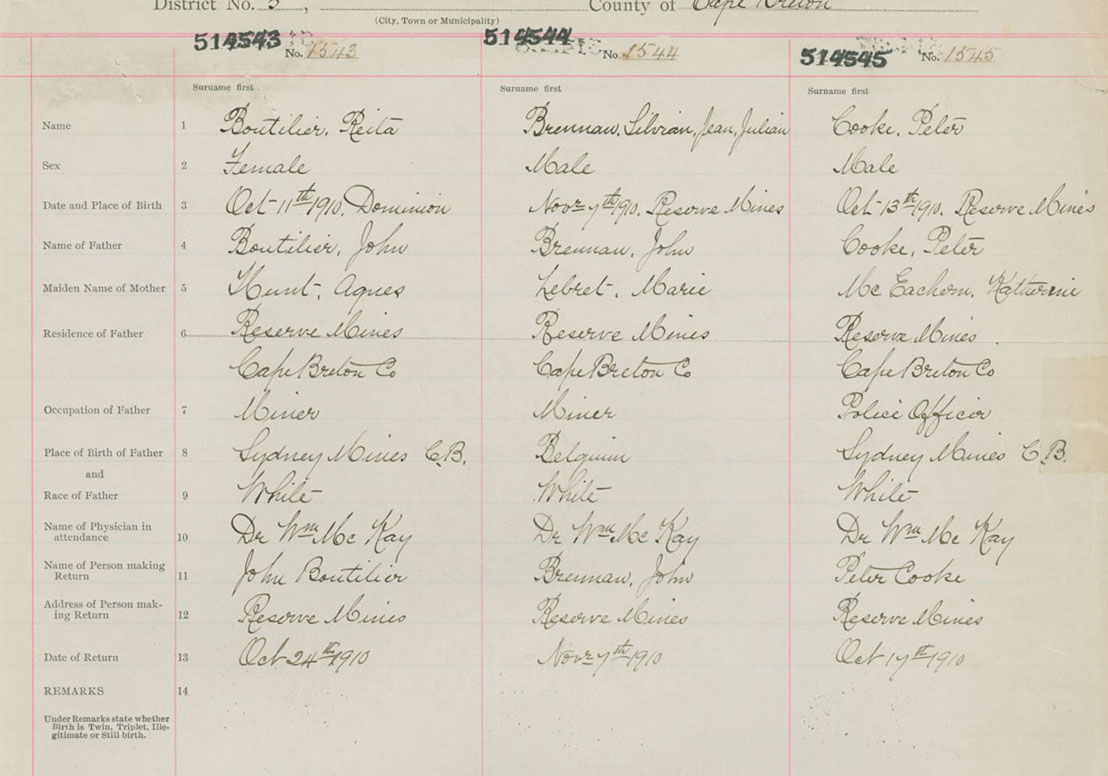 District No. 3, County of Cape Breton
(City, Town or Municipality)
514543 No. 1543
514544 No. 1544
514545 No. 1545
Surname first Surname first Surname first
Name 1 Boutilier, Reita Brennan, Silvian, Jean, Julian Cooke, Peter
Sex 2 Female Male Male
Date and Place of Birth 3 Oct 11th 1910. Dominion Novr 7th 1910. Reserve Mines Oct 13th 1910. Reserve Mines
Name of Father 4 Boutilier, John Brennan, John Cooke, Peter
Maiden Name of Mother 5 Hunt, Agnes Lebret, Marie Mc Eachern, Katherine
Residence of Father 6 Reserve Mines Reserve Mines Reserve Mines
Cape Breton Co Cape Breton Co Cape Breton Co
Occupation of Father 7 Miner Miner Police Officer
Place of Birth of Father 8 Sydney Mines C.B. Belguim Sydney Mines C.B.
and
Race of Father 9 White White White
Name of Physician in
attendance 10 Dr Wm Mc Kay Dr Wm Mc Kay Dr Wm Mc Kay
Name of Person making
Return 11 John Boutilier Brennan, John Peter Cooke
Address of Person mak-
ing Return 12 Reserve Mines Reserve Mines Reserve Mines
Date of Return 13 Oct 24th 1910 Novr 7th 1910 Oct 17th 1910
REMARKS 14
Under Remarks state whether
Birth is Twin, Triplet, Ille-
gitimate or Still birth.